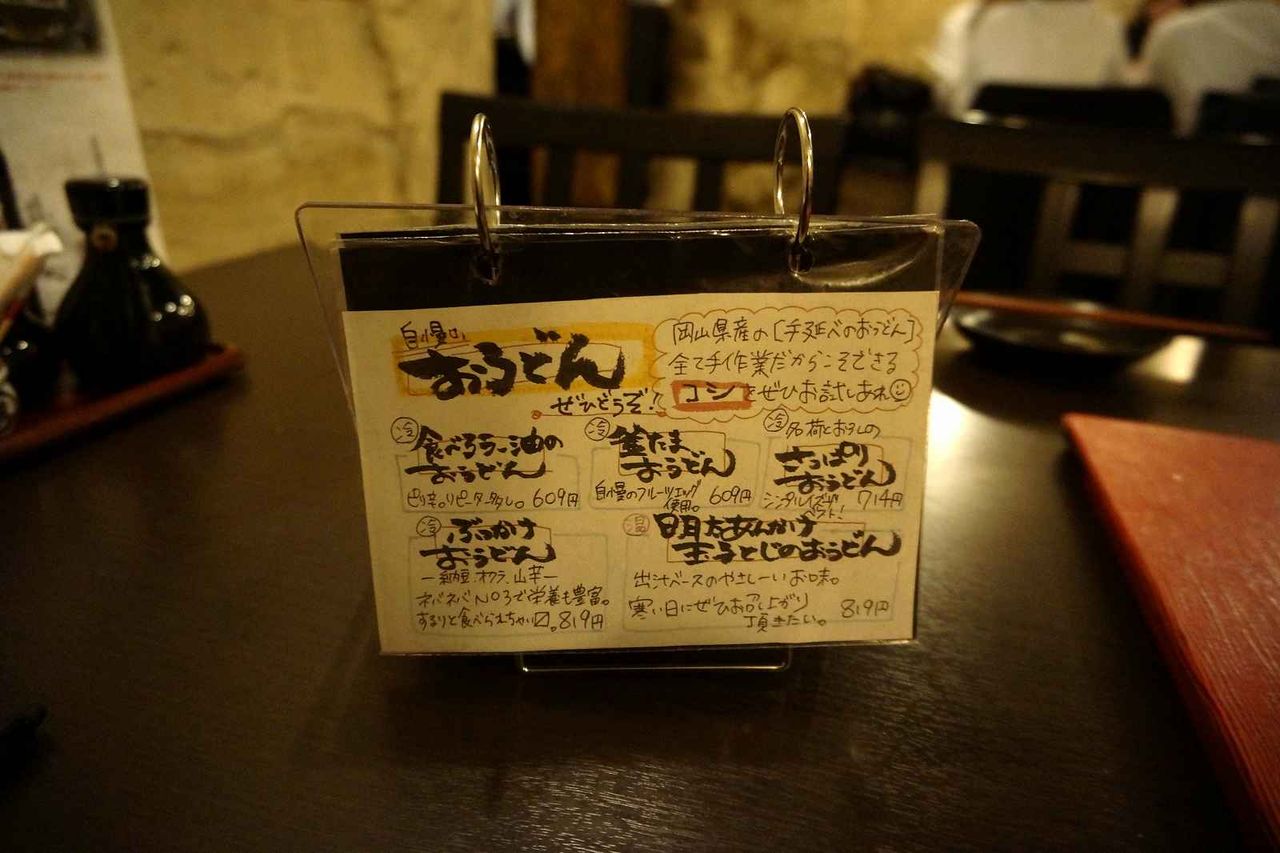 自慢の
おうどん
ぜひどうぞ!
岡山県産の[手延べのおうどん]
全て手作業だからこそできる
コシをぜひお試しあれ
冷 食べるラー油の
おうどん
ピリ辛。リピーター多し。 609円
冷 釜たま
おうどん
自慢のフルーツエッグ
使用。 609円
冷 名荷とおろしの
さっぱり
おうどん
シンプルイズザ
ベスト! 714円
冷 ぶっかけ
おうどん
ー納豆、オクラ、山芋ー
ネバネバNO3で栄養も豊富。
するりと食べられちゃい〼。819円
温 明太あんかけ
玉子とじのおうどん
出汁ベースのやさしーいお味。
寒い日にぜひお召し上がり
頂きたい。 819円